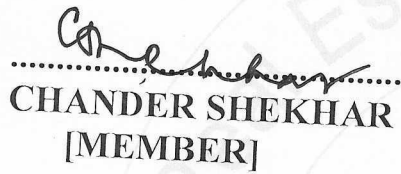 CHANDER SHEKHAR
[MEMBER]